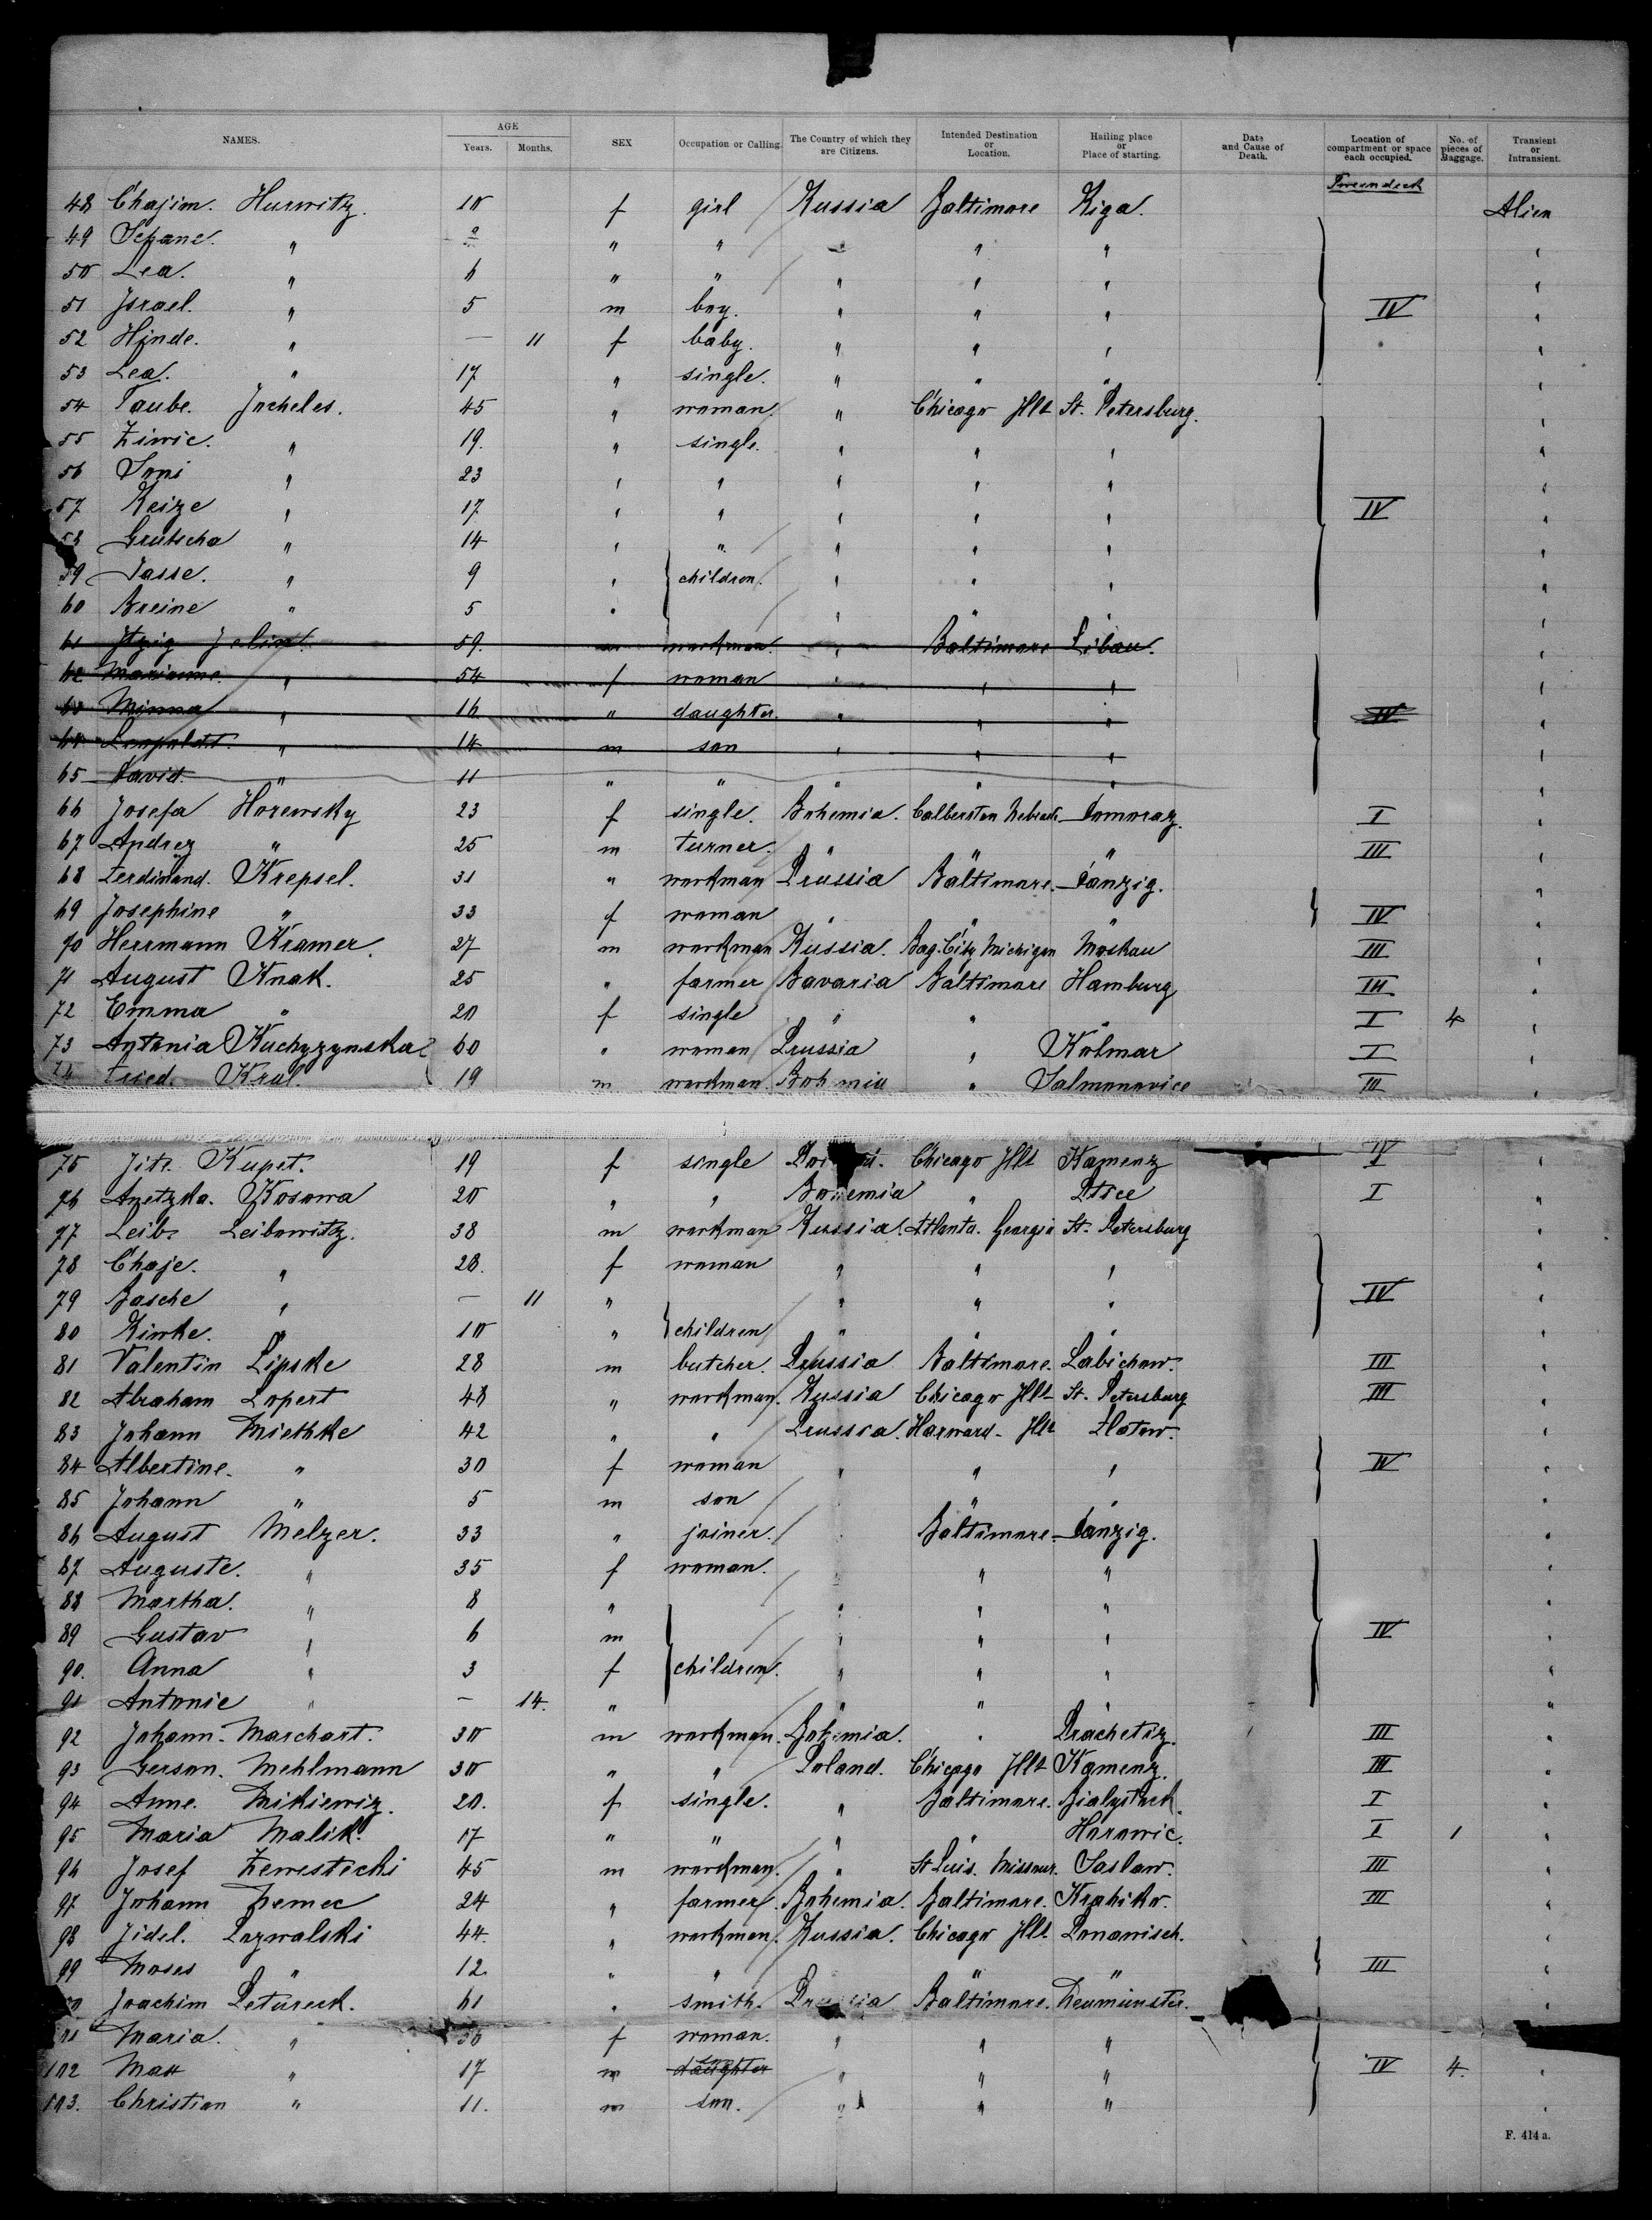 NAMES. AGE Years. Months. SEX Occupation or Calling. The Country of which they are Citizens. Intended Destination or Location. Hailing place or Place of starting. Date and Cause of Death. Location of compartment or space each occupied. No. of pieces of Baggage. Transient or Intransient.
48 Chajim. Hurwitz. 10 f girl Russia Baltimore Riga. Alien
49 " " " " " "
50 Lea. " 6 " " " " " "
51 Israel. " 5 m boy. " " " IV "
52 Hinde. " — 11 f baby. " " " "
53 Lea. " 17 " single. " " " "
54 Taube. Jocheles. 45 " woman. " Chicago Ills St. Petersburg. "
55 Ziwie. " 19. " single. " " " "
56 Soni " 23 " " " " " "
57 Reize " 17 " " " " " IV "
58 Grutscha " 14 " " " " " "
59 Jasse. " 9 " children. " " " "
60 Breine " 5 " " " " "
61 Itzig Jelin. 59. m workman. " Baltimore Libau. "
62 Marianne. " 54 f woman " " " "
63 Minna " 16 " daughter. " " " IV "
64 Leopoldt. " 14 m son " " " "
65 David. " 11 " " " " " "
66 Josefa Horewsky 23 f single. Bohemia. Culberston Nebrask. I "
67 Andrez " 25 m turner. " " " III "
68 Ferdinand. Krepsel. 31 " workman Prussia Baltimore. Danzig. "
69 Josephine " 33 f woman " " " IV "
70 Herrmann Kramer. 27 m workman Russia. Bay. City Michigan Moskau III "
71 August Knak. 25 " farmer Bavaria Baltimore Hamburg III "
72 Emma " 20 f single " " " I 4 "
73 Antonia Kuchyzynska 60 " woman Prussia " Kolmar I "
74 Fried. Kral. 19 m workman. Bohemia " Salmanovice III "
75 Jite. Kupet. 19 f single Chicago Ills Kamenz I "
76 Anetzka. Kosowa 20 " " Bohemia " Ptice I "
77 Leib. Leibowitz. 38 m workman Russia. Atlanta. Georgia St. Petersburg "
78 Chaje. " 28. f woman " " " "
79 Basche " — 11 " " " " IV "
80 Riwke. " 10 " children " " " "
81 Valentin Lipske 28 m butcher. Prussia Baltimore. Labichow. III "
82 Abraham Lopert 48 " workman. Russia Chicago Ills St. Petersburg III "
83 Johann Miethke 42 " " Prussia. Harward. Ills Flatow. "
84 Albertine. " 30 f woman " " " IV "
85 Johann " 5 m son " " "
86 August Melzer. 33 " joiner. Baltimore. Danzig. "
87 Auguste. " 35 f woman. " " " "
88 Martha. " 8 " " " " "
89 Gustav " 6 m " " " IV "
90. Anna " 3 f children. " " " "
91 Antonie " — 14. " " " " "
92 Johann. Marchart. 30 m workman. Bohemia. " Prachetiz. III "
93 Gerson. Mehlmann 30 " " Poland. Chicago Ills Kamenz. III "
94 Anne. Mikiewiz. 20. f single. " Baltimore. Bialystock. I "
95 Maria Malik. 17 " " " " Horowic. I 1 "
96 Josef 45 m workman. " St Luis. Missour. Saslaw. III "
97 Johann Nemec 24 " farmer. Bohemia. Baltimore. III "
98 Jidel. 44. " workman. Russia. Chicago Ills "
99 Moses " 12. " " " " III "
Joachim Petureck. 61 " smith. Prussia Baltimore. Neumünster. "
101 Maria. " 56 f woman. " " " "
102 Max " 17 m daughter son " " " IV 4. "
103. Christian " 11. m son. " " " "
F. 414 a.